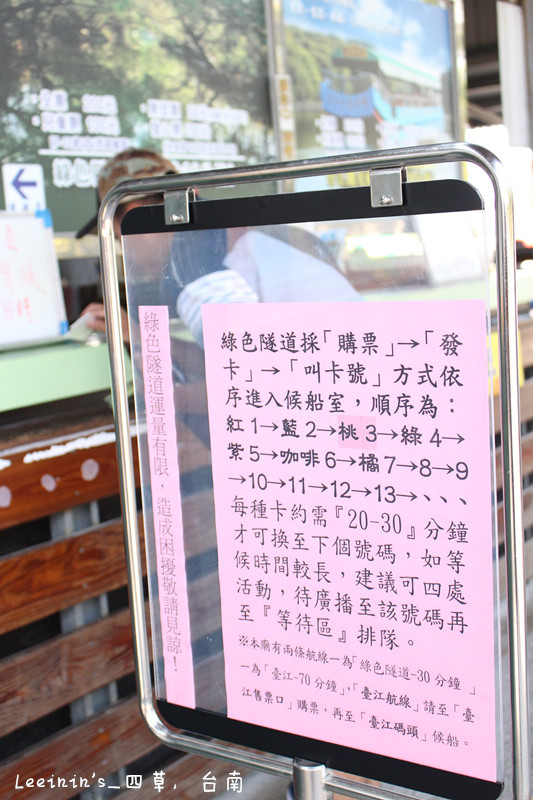 綠色隧道運量有限,造成困擾敬請見諒!
綠色隧道採「購票」→「發
卡」→「叫卡號」方式依
序進入候船室,順序為:
紅1→藍2→桃3→綠4→
紫5→咖啡6→橘7→8→9
→10→11→12→13→、、、
每種卡約需『20-30』分鐘
才可換至下個號碼,如等
候時間較長,建議可四處
活動,待廣播至該號碼再
至『等待區』排隊。
※本廟有兩條航線一為「綠色隧道~30分鐘」
一為「臺江~70分鐘」,「臺江航線」請至「臺
江售票口」購票,再至「臺江碼頭」候船。
Leeinin's_四草, 台南